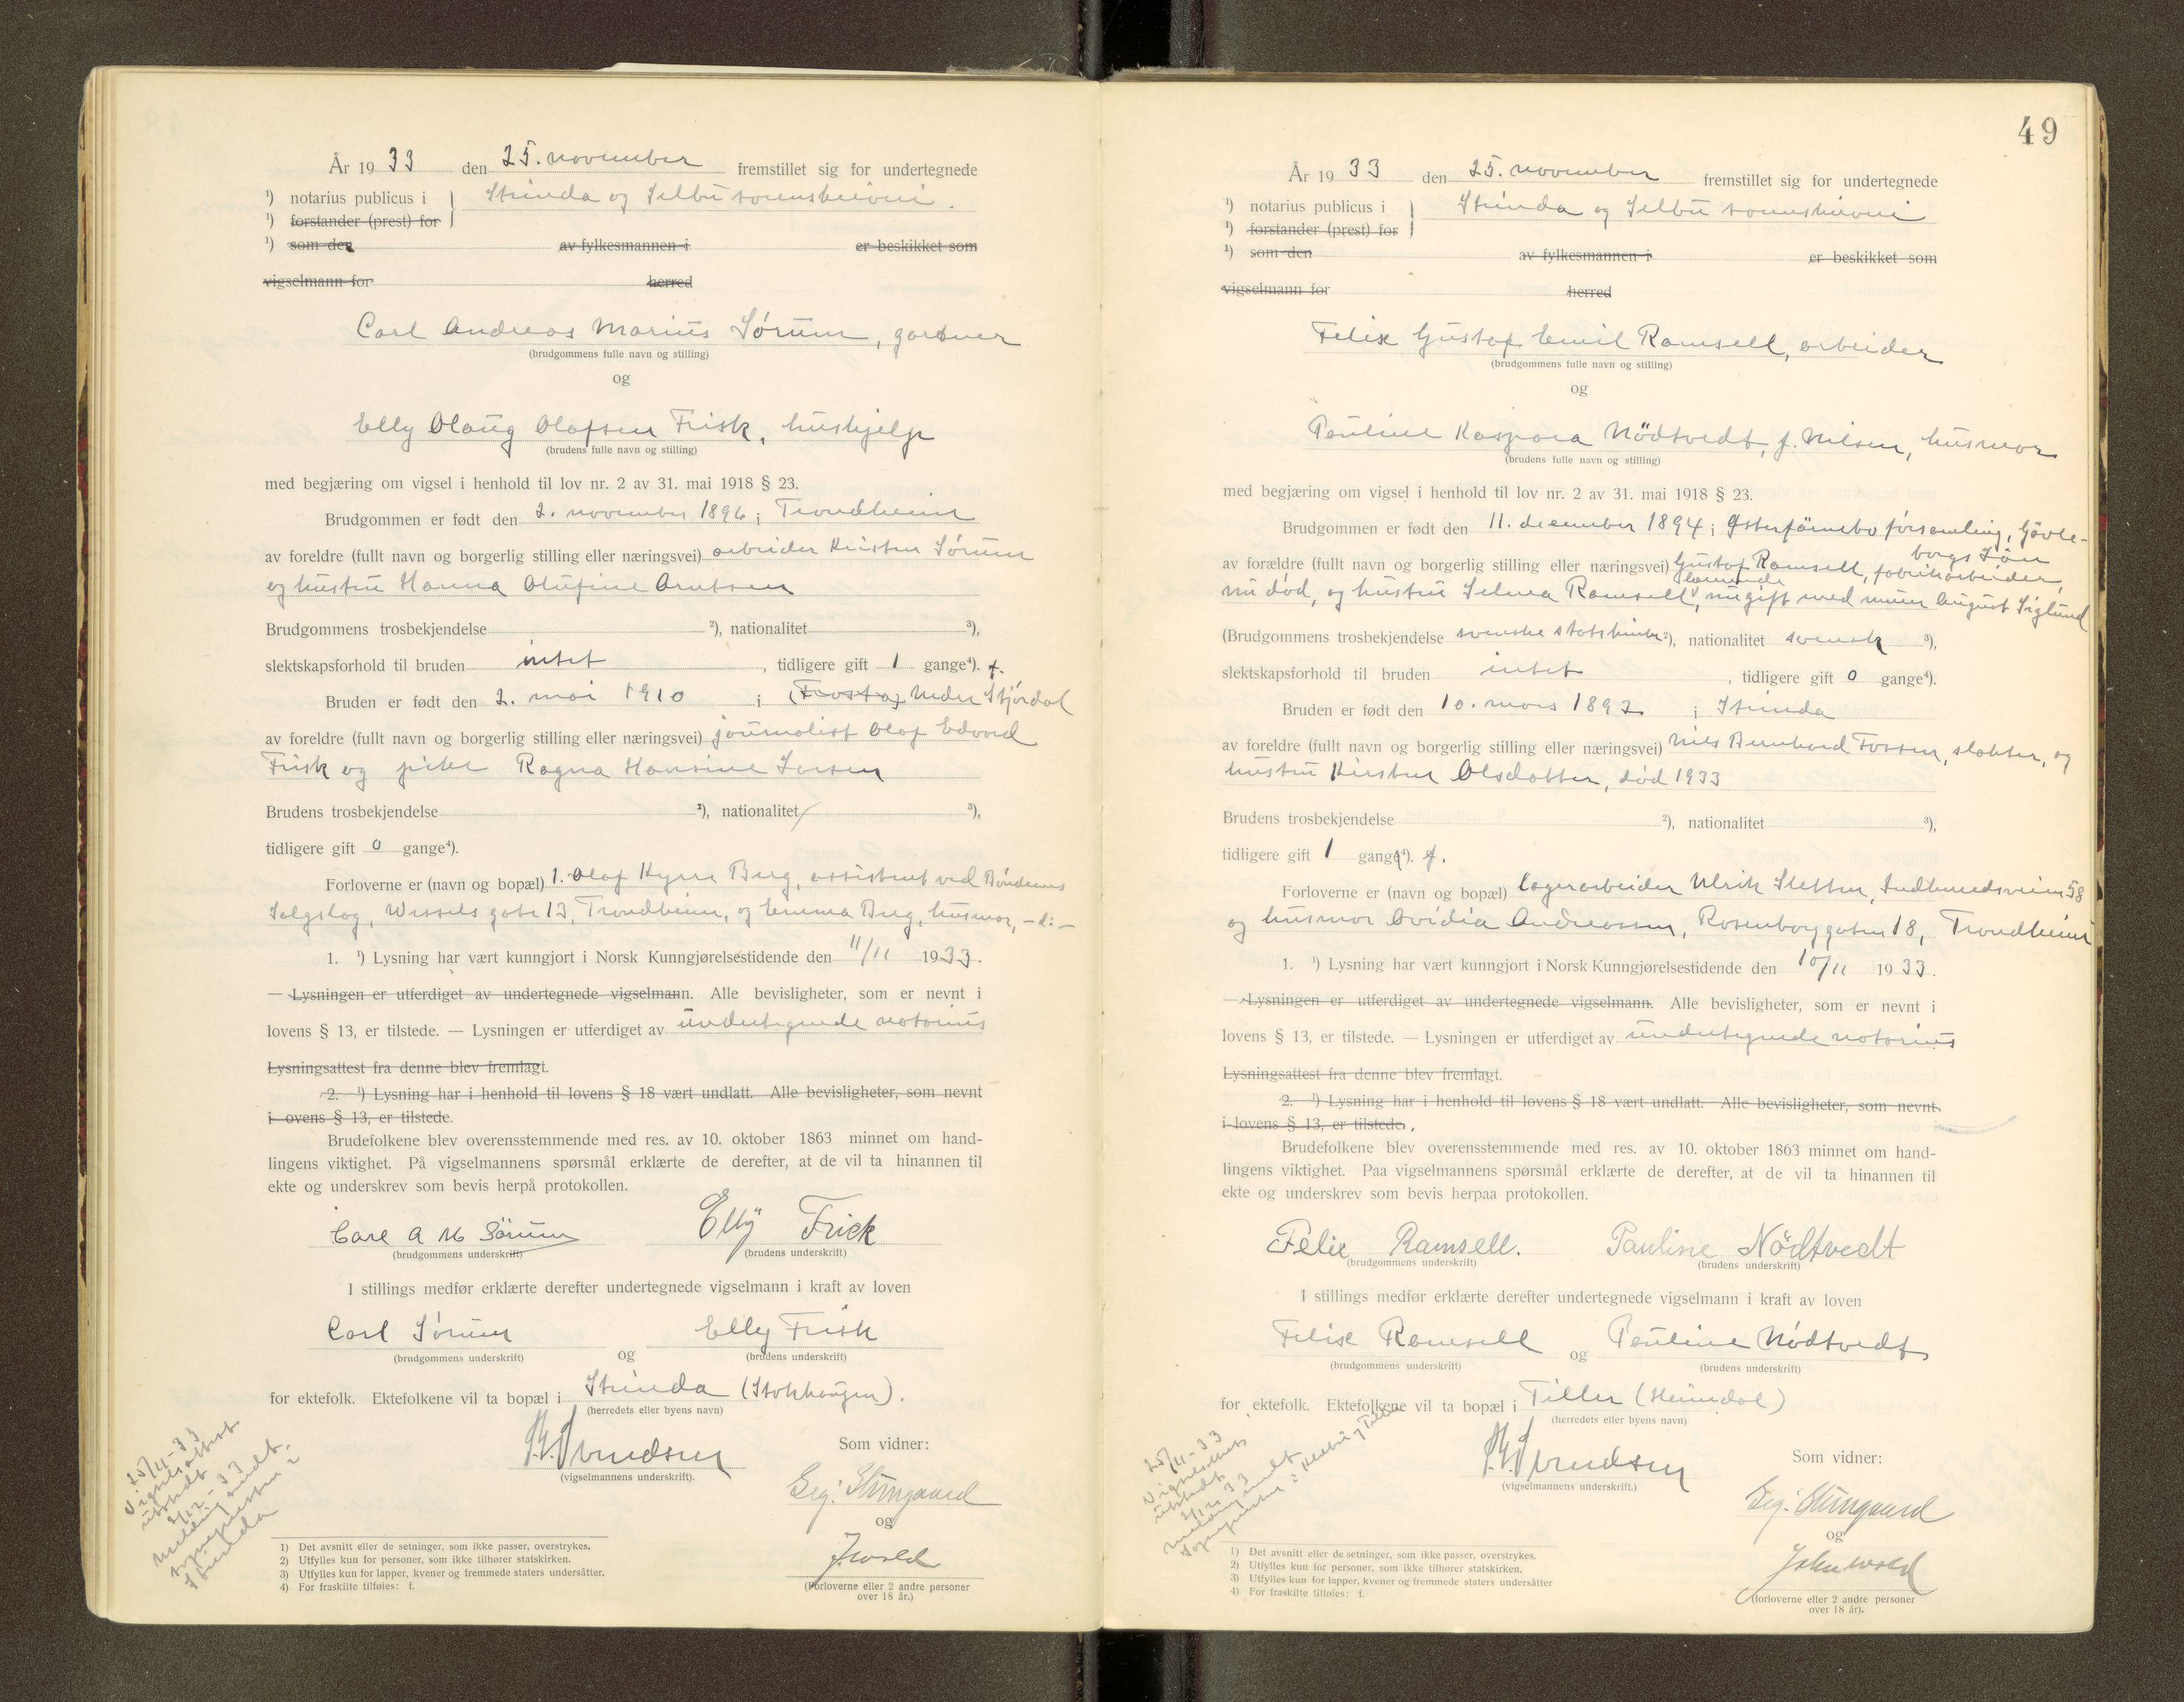 År 19 33 den 25. november fremstillet sig for undertegnede
¹) notarius publicus i } Strinda og Selbu sorenskriveri.
¹) forstander (prest) for
¹) som den av fylkesmannen i er beskikket som
vigselmann for herred
Carl Andreas Marius Sørum, gartner
(brudgommens fulle navn og stilling)
og
Elly Olaug Olafsen Frisk, hushjelp
(brudens fulle navn og stilling)
med begjæring om vigsel i henhold til lov nr. 2 av 31. mai 1918 § 23.
Brudgommen er født den 2. november 1896 i Trondheim
av foreldre (fullt navn og borgerlig stilling eller næringsvei) arbeider Kristen Sørum
og hustru Hanna Olufine Arntsen
Brudgommens trosbekjendelse ²), nationalitet ³),
slektskapsforhold til bruden intet , tidligere gift 1 gange⁴). f.
Bruden er født den 2. mai 1910 i (Frosta) Nedre Stjørdal
av foreldre (fullt navn og borgerlig stilling eller næringsvei) journalist Olaf Edvard
Frisk og pike Ragna Hansine Larsen
Brudens trosbekjendelse ²), nationalitet ³),
tidligere gift 0 gange⁴).
Forloverne er (navn og bopæl) 1. Olaf Kyrre Berg, assistent ved Bøndenes
Salgslag, Wessels gate 13, Trondheim, og Emma Berg, husmor, -d:-
1. ¹) Lysning har vært kunngjort i Norsk Kunngjørelsestidende den 11/11 1933.
— Lysningen er utferdiget av undertegnede vigselmann. Alle bevisligheter, som er nevnt i
lovens § 13, er tilstede. — Lysningen er utferdiget av undertegnede notarius
Lysningsattest fra denne blev fremlagt.
2. ¹) Lysning har i henhold til lovens § 18 vært undlatt. Alle bevisligheter, som nevnt
i ovens § 13, er tilstede.
Brudefolkene blev overensstemmende med res. av 10. oktober 1863 minnet om hand-
lingens viktighet. På vigselmannens spørsmål erklærte de derefter, at de vil ta hinannen til
ekte og underskrev som bevis herpå protokollen.
Carl A M Sørum Elly Frisk
(brudgommens underskrift) (brudens underskrift)
I stillings medfør erklærte derefter undertegnede vigselmann i kraft av loven
Carl Sørum og Elly Frisk
(brudgommens underskrift) (brudens underskrift)
for ektefolk. Ektefolkene vil ta bopæl i Strinda (Stokhaugen).
(herredets eller byens navn)
(vigselmannens underskrift).
Som vidner:
og
J. Wold
(Forloverne eller 2 andre personer
over 18 år.)
25/4-33
Vigselsattest
utstedt
2/12-33
Melding sendt
sognepresten i
Strinda
1) Det avsnitt eller de setninger, som ikke passer, overstrykes.
2) Utfylles kun for personer, som ikke tilhører statskirken.
3) Utfylles kun for lapper, kvener og fremmede staters undersåtter.
4) For fraskilte tilføies: f.
49
År 19 33 den 25. november fremstillet sig for undertegnede
¹) notarius publicus i } Strinda og Selbu sorenskriveri
¹) forstander (prest) for
¹) som den av fylkesmannen i er beskikket som
vigselmann for herred
Felix Gustaf Emil Ramsell, arbeider
(brudgommens fulle navn og stilling)
og
Pauline Kaspara Nödtvedt, f. Nilsen, husmor
(brudens fulle navn og stilling)
med begjæring om vigsel i henhold til lov nr. 2 av 31. mai 1918 § 23.
Brudgommen er født den 11. december 1894 i Østerfärnebo församling, Gävle-
borgs Län
av forældre (fullt navn og borgerlig stilling eller næringsvei) Gustaf Ramsell, fabrikarbeider,
nu død, og hustru Selma Ramsell, levende nu gift med murer August Siglund
(Brudgommens trosbekjendelse svenske statskirke ²), nationalitet svensk ³),
slektskapsforhold til bruden intet , tidligere gift 0 gange⁴).
Bruden er født den 10. mars 1892 i Strinda
av foreldre (fullt navn og borgerlig stilling eller næringsvei) Nils Bernhard Fossen, slakter, og
hustru Kirsten Olsdatter, død 1933
Brudens trosbekjendelse ²), nationalitet ³),
tidligere gift 1 gange⁴). f.
Forloverne er (navn og bopæl) lagerarbeider Ulrik Sletten, Indherredsveien 58
og husmor Ovidia Andreassen, Rosenborggaten 18, Trondheim
1. ¹) Lysning har vært kunngjort i Norsk Kunngjørelsestidende den 10/11 1933.
— Lysningen er utferdiget av undertegnede vigselmann. Alle bevisligheter, som er nevnt i
lovens § 13, er tilstede. — Lysningen er utferdiget av undertegnede notarius
Lysningsattest fra denne blev fremlagt.
2. ¹) Lysning har i henhold til lovens § 18 vært undlatt. Alle bevisligheter, som nevnt
i lovens § 13, er tilstede.
Brudefolkene blev overensstemmende med res. av 10. oktober 1863 minnet om hand-
lingens viktighet. Paa vigselmannens spørsmål erklærte de derefter, at de vil ta hinannen til
ekte og underskrev som bevis herpaa protokollen.
Felix Ramsell. Pauline Nödtvedt
(brudgommens underskrift) (brudens underskrift)
I stillings medfør erklærte derefter undertegnede vigselmann i kraft av loven
Felix Ramsell og Pauline Nödtvedt
(brudgommens underskrift) (brudens underskrift)
for ektefolk. Ektefolkene vil ta bopæl i Tiller (Heimdal)
(herredets eller byens navn)
(vigselmannens underskrift.)
Som vidner:
og
John Wold
(forloverne eller 2 andre personer
over 18 år).
25/4-33
Vigselsattest
utstedt
2/12 33
melding sendt
sogneprest i Klæbu og Tiller
1) Det avsnitt eller de setninger, som ikke passer, overstrykes.
2) Utfylles kun for personer, som ikke tilhører statskirken.
3) Utfylles kun for lapper, kvener og fremmede staters undersåtter
4) For fraskilte tilføies: f.